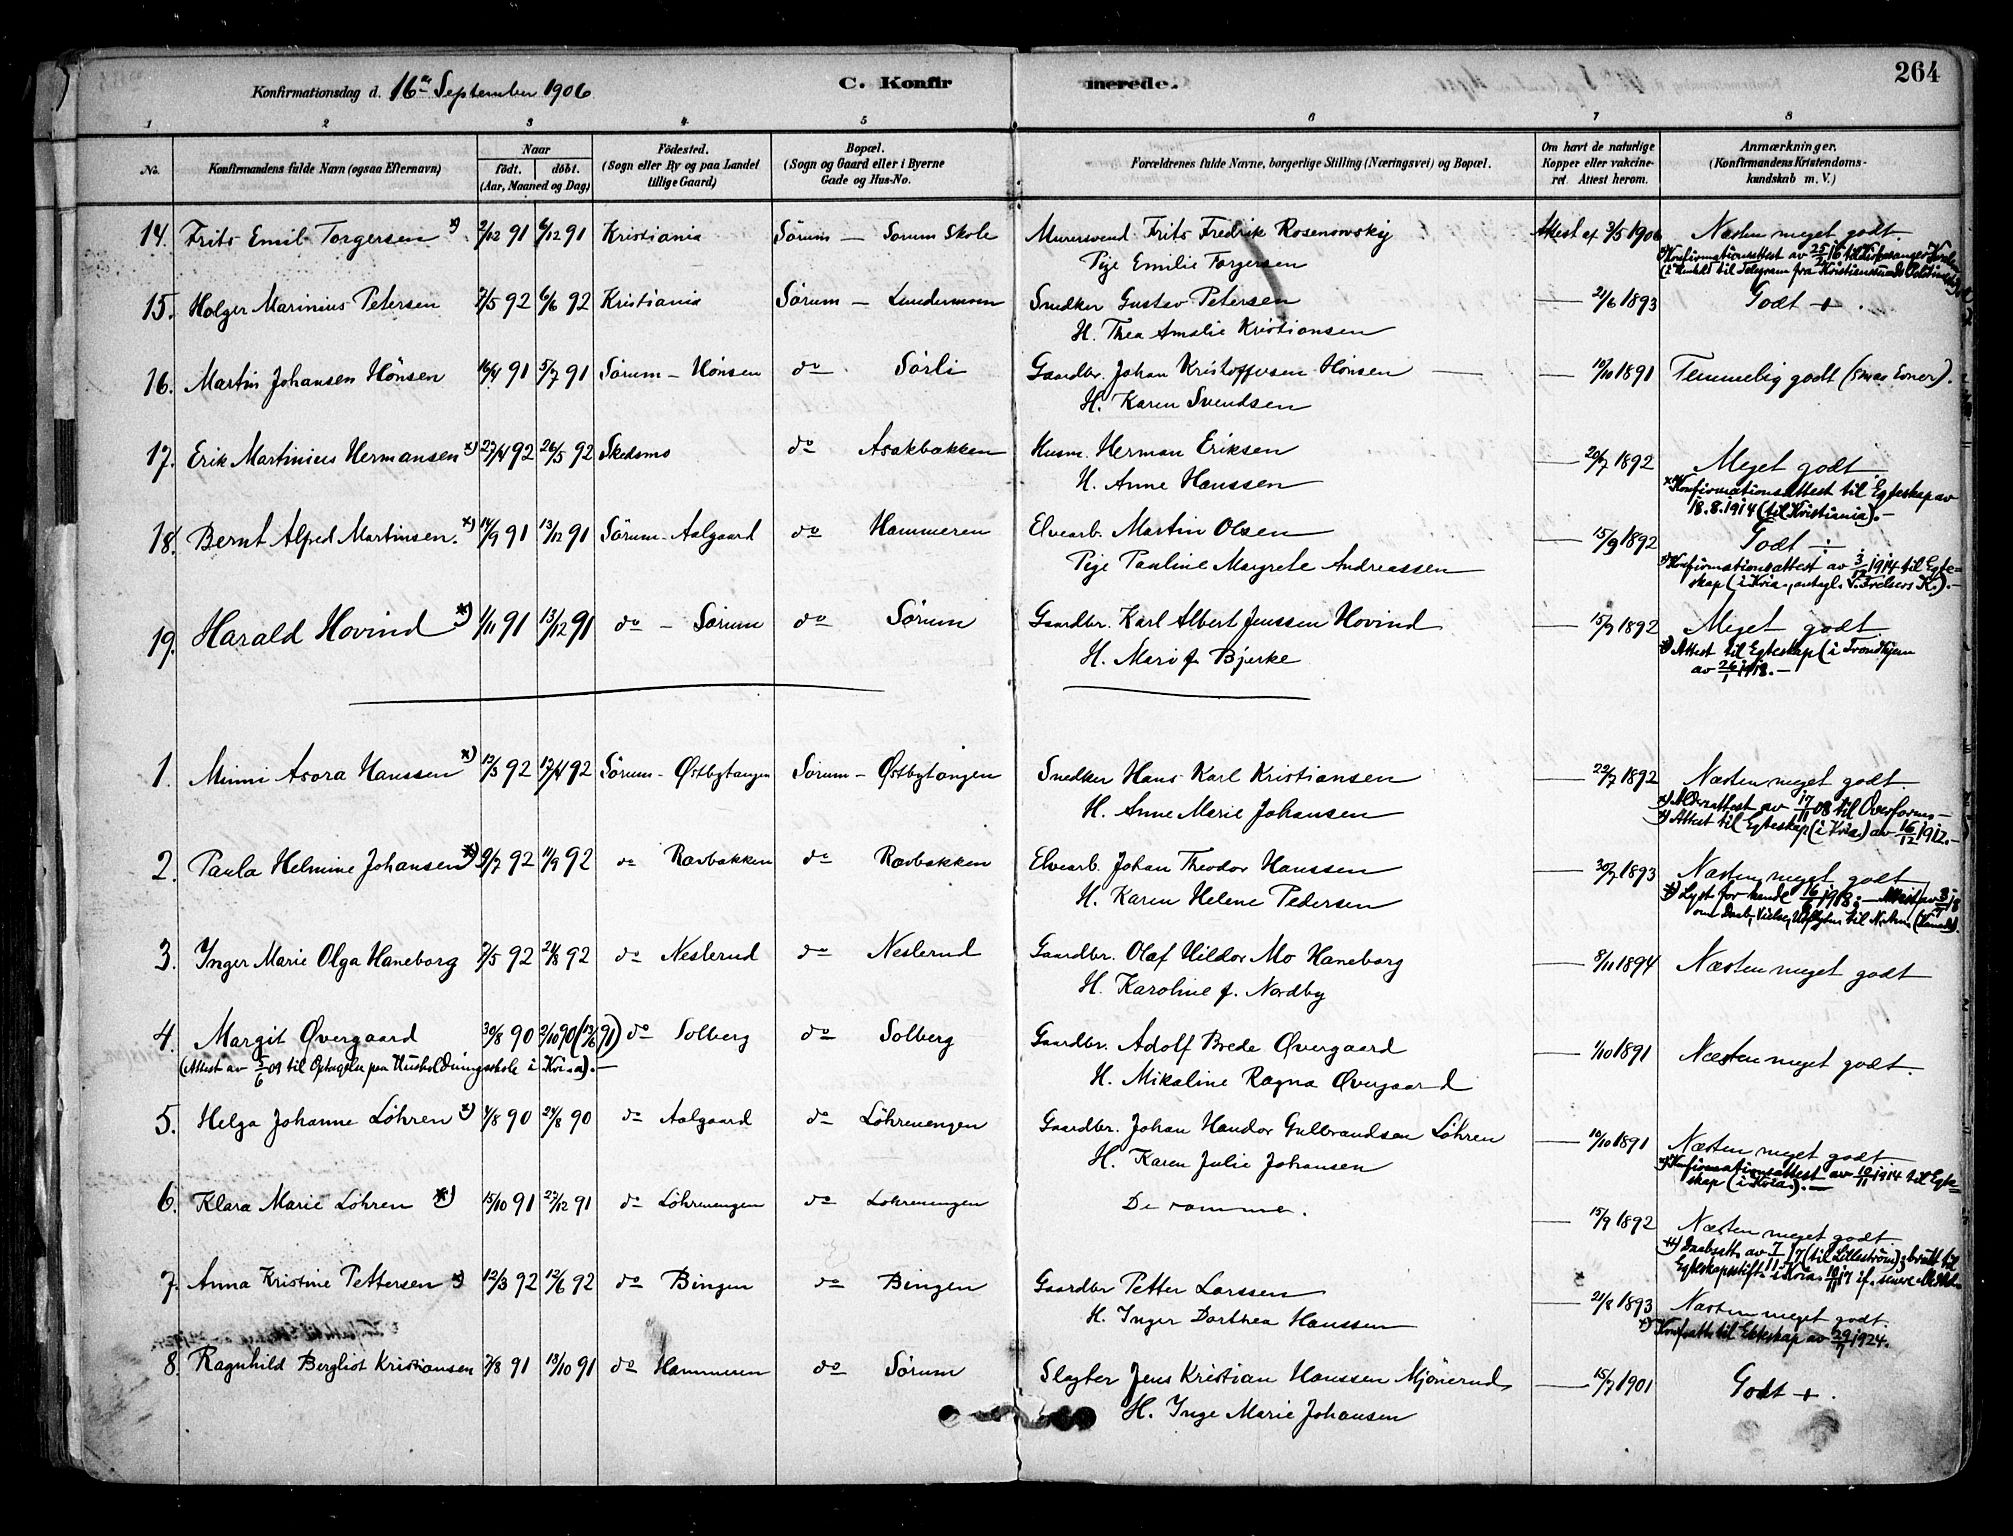 264
Konfirmationsdag d. 16de September 1906
C. Konfirmerede.
1 2 3 4 5 6 7 8
No. Konfirmandens fulde Navn (ogsaa Efternavn) Naar født. døbt. (Aar, Maaned og Dag) Fødested. (Sogn eller By og paa Landet tillige Gaard) Bopæl. (Sogn og Gaard eller i Byerne Gade og Hus-No. Forældrenes fulde Navne, borgerlige Stilling (Næringsvei) og Bopæl. Om havt de naturlige Kopper eller vakcineret. Attest herom. Anmærkninger. (Konfirmandens Kristendomskundskab m. V.)
14. Frits Emil Torgersen x) 2/12 91 6/12 91 Kristiania Sørum — Sørum Skole Murersvend Frits Fredrik Rosensovsky Attest af 3/5 1906 Næsten meget godt.
Pige Emilie Torgersen
x) Konfirmationsattest av 25/2 16 til
til Telegram fra Kristianssunds
15. Holger Marinius Petersen 2/5 92 6/6 92 Kristiania Sørum — Lundermoen Snedker Gustav Petersen — 21/6 1893 Godt +.
H. Thea Amalie Kristiansen
16. Martin Johansen Hönsen 16/4 91 5/7 91 Sørum — Hönsen do Sørli Gaardbr. Johan Kristoffersen Hönsen — 10/10 1891 Temmelig godt (smaa Evner).
H. Karen Svendsen
17. Erik Martinius Hermansen x) 27/4 92 26/5 92 Skedsmo do Asakbakken Husm. Herman Eriksen — 20/7 1892 Meget godt
H. Anne Hanssen
x) Konfirmationsattest til Egteskap av
18.8.1914 (til Kristiania).—
18. Bernt Alfred Martinsen. x) 14/9 91 13/12 91 Sørum - Aalgaard do Hammeren Elvearb. Martin Olsen — 15/9 1892 Godt ÷
Pige Pauline Margrete Andreassen
x) Konfirmationsattest av 3/12 1914 til Egteskap (i Kria., antagl. V. Frelsers K.).—
19. Harald Hovind x) 1/11 91 13/12 91 do — Sørum do Sørum Gaardbr. Karl Albert Jenssen Hovind — 15/7 1892 Meget godt
H. Mari f. Bjerke
x) Attest til Egteskap (i Trondhjem
av 26/1 1918.—
1. Minni Asora Hanssen x) 13/3 92 17/4 92 Sørum — Østbytangen Sørum — Østbytangen Snedker Hans Karl Kristiansen — 22/7 1892 Næsten meget godt.
H. Anne Marie Johansen
x) Aldersattest av 17/11 08 til Overform—
x) Attest til Egteskap (i Kria) av 16/12 1912.—
2. Paula Helmine Johansen x) 9/7 92 11/9 92 do Ravbakken do Ravbakken Elvearb. Johan Theodor Hanssen — 30/7 1893 Næsten meget godt
H. Karen Helene Pedersen
x) Lyst for hende 16/6 1918; —
om Daab, Vielse,
3. Inger Marie Olga Haneborg 2/5 92 21/8 92 do Neslerud do Neslerud Gaardbr. Olaf Hildor Mo Haneborg — 8/11 1894 Næsten meget godt
H. Karoline f. Nordby
4. Margit Øvergaard 30/8 90 2/10 90 (13/6 91) do Solberg do Solberg Gaardbr. Adolf Brede Øvergaard — 1/10 1891 Næsten meget godt.
(Attest av 5/6 09 til Optagelse paa Husholdningsskole i Kria).—
H. Mikaline Ragna Øvergaard
5. Helga Johanne Löhren x) 1/8 90 24/8 90 do Aalgaard do Löhrenengen Gaardbr. Johan Handor Gulbrandsen Löhren — 10/10 1891 Næsten meget godt
H. Karen Julie Johansen
x) Konfirmationsattest av 10/11 1914 til Egteskap (i Kria.).—
6. Klara Marie Löhren x) 15/10 91 27/12 91 do Löhrenengen do Löhrenengen De samme. — 15/9 1892 Næsten meget godt.
x) Daabsatt. av 7/11 17 (til Lilleström)
Egteskapsstift. i Kria. 10/11 17
7. Anna Kristine Pettersen x) 12/3 92 12/6 92 do Bingen do Bingen Gaardbr Petter Larssen — 21/8 1893 Næsten meget godt.
H. Inger Dorthea Hanssen
x) Konf.att. til Ekteskap av 29/7 1924.
8. Ragnhild Bergliot Kristiansen 7/8 91 18/10 91 do Hammeren do Sørum Slagter Jens Kristian Hanssen Mjönerud — 15/7 1901 Godt +.
H. Inge Marie Johansen